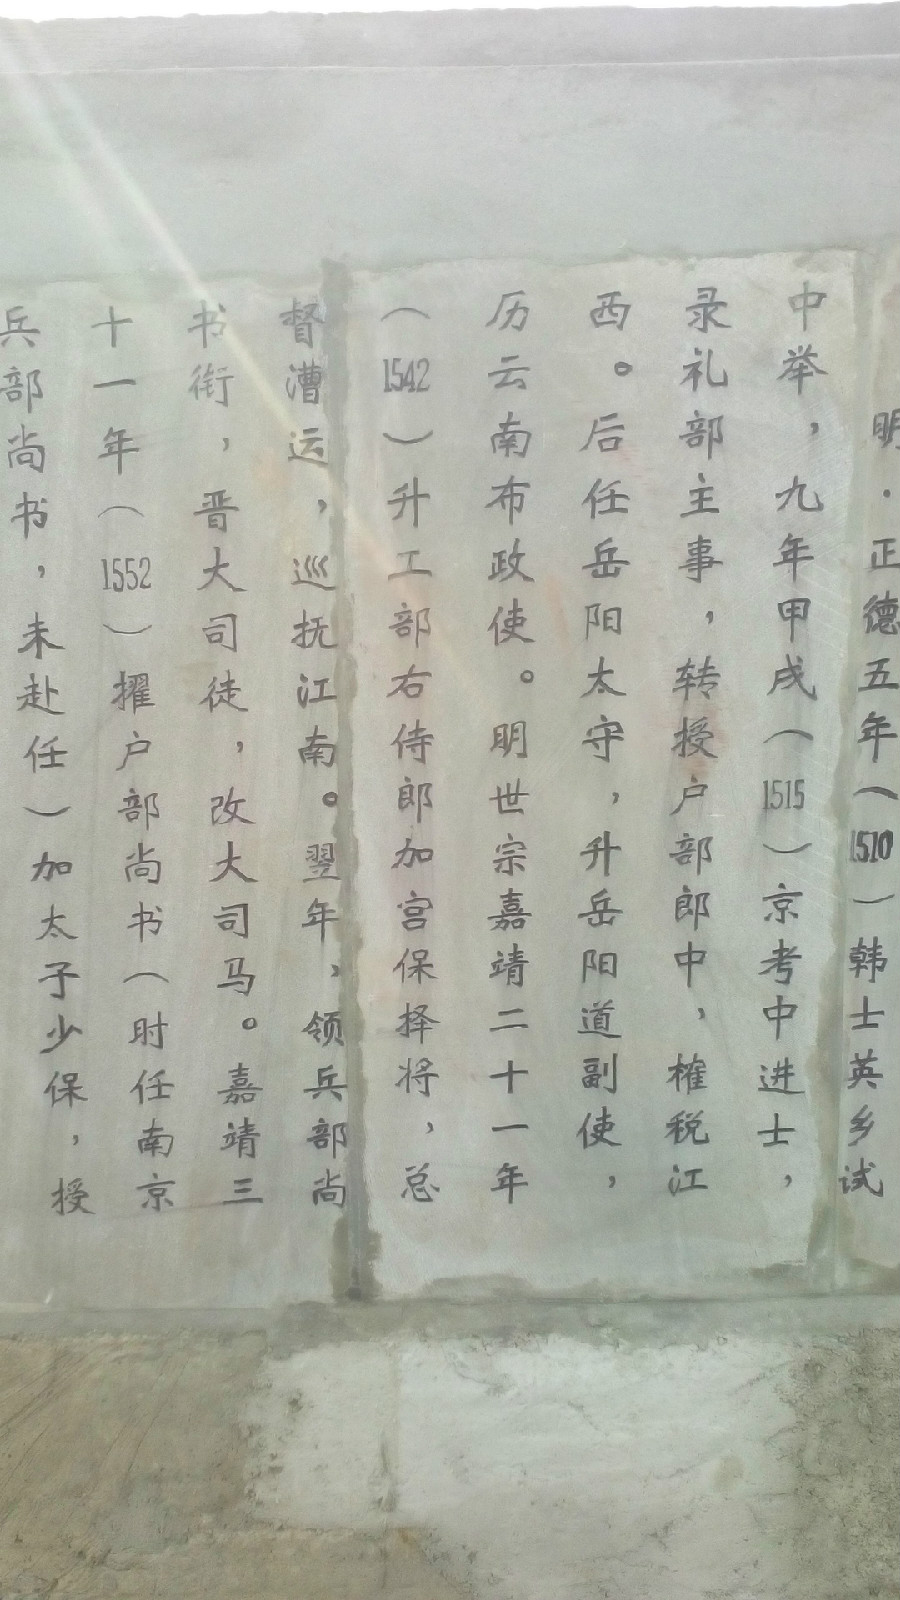 明·正德五年（1510）韩士英乡试
中举，九年甲戌（1515）京考中进士，
录礼部主事，转授户部郎中，榷税江
西。后任岳阳太守，升岳阳道副使，
历云南布政使。明世宗嘉靖二十一年
（1542）升工部右侍郎加宫保择将，总
督漕运，巡抚江南。翌年，领兵部尚
书衔，晋大司徒，改大司马。嘉靖三
十一年（1552）擢户部尚书（时任南京
兵部尚书，未赴任）加太子少保，授